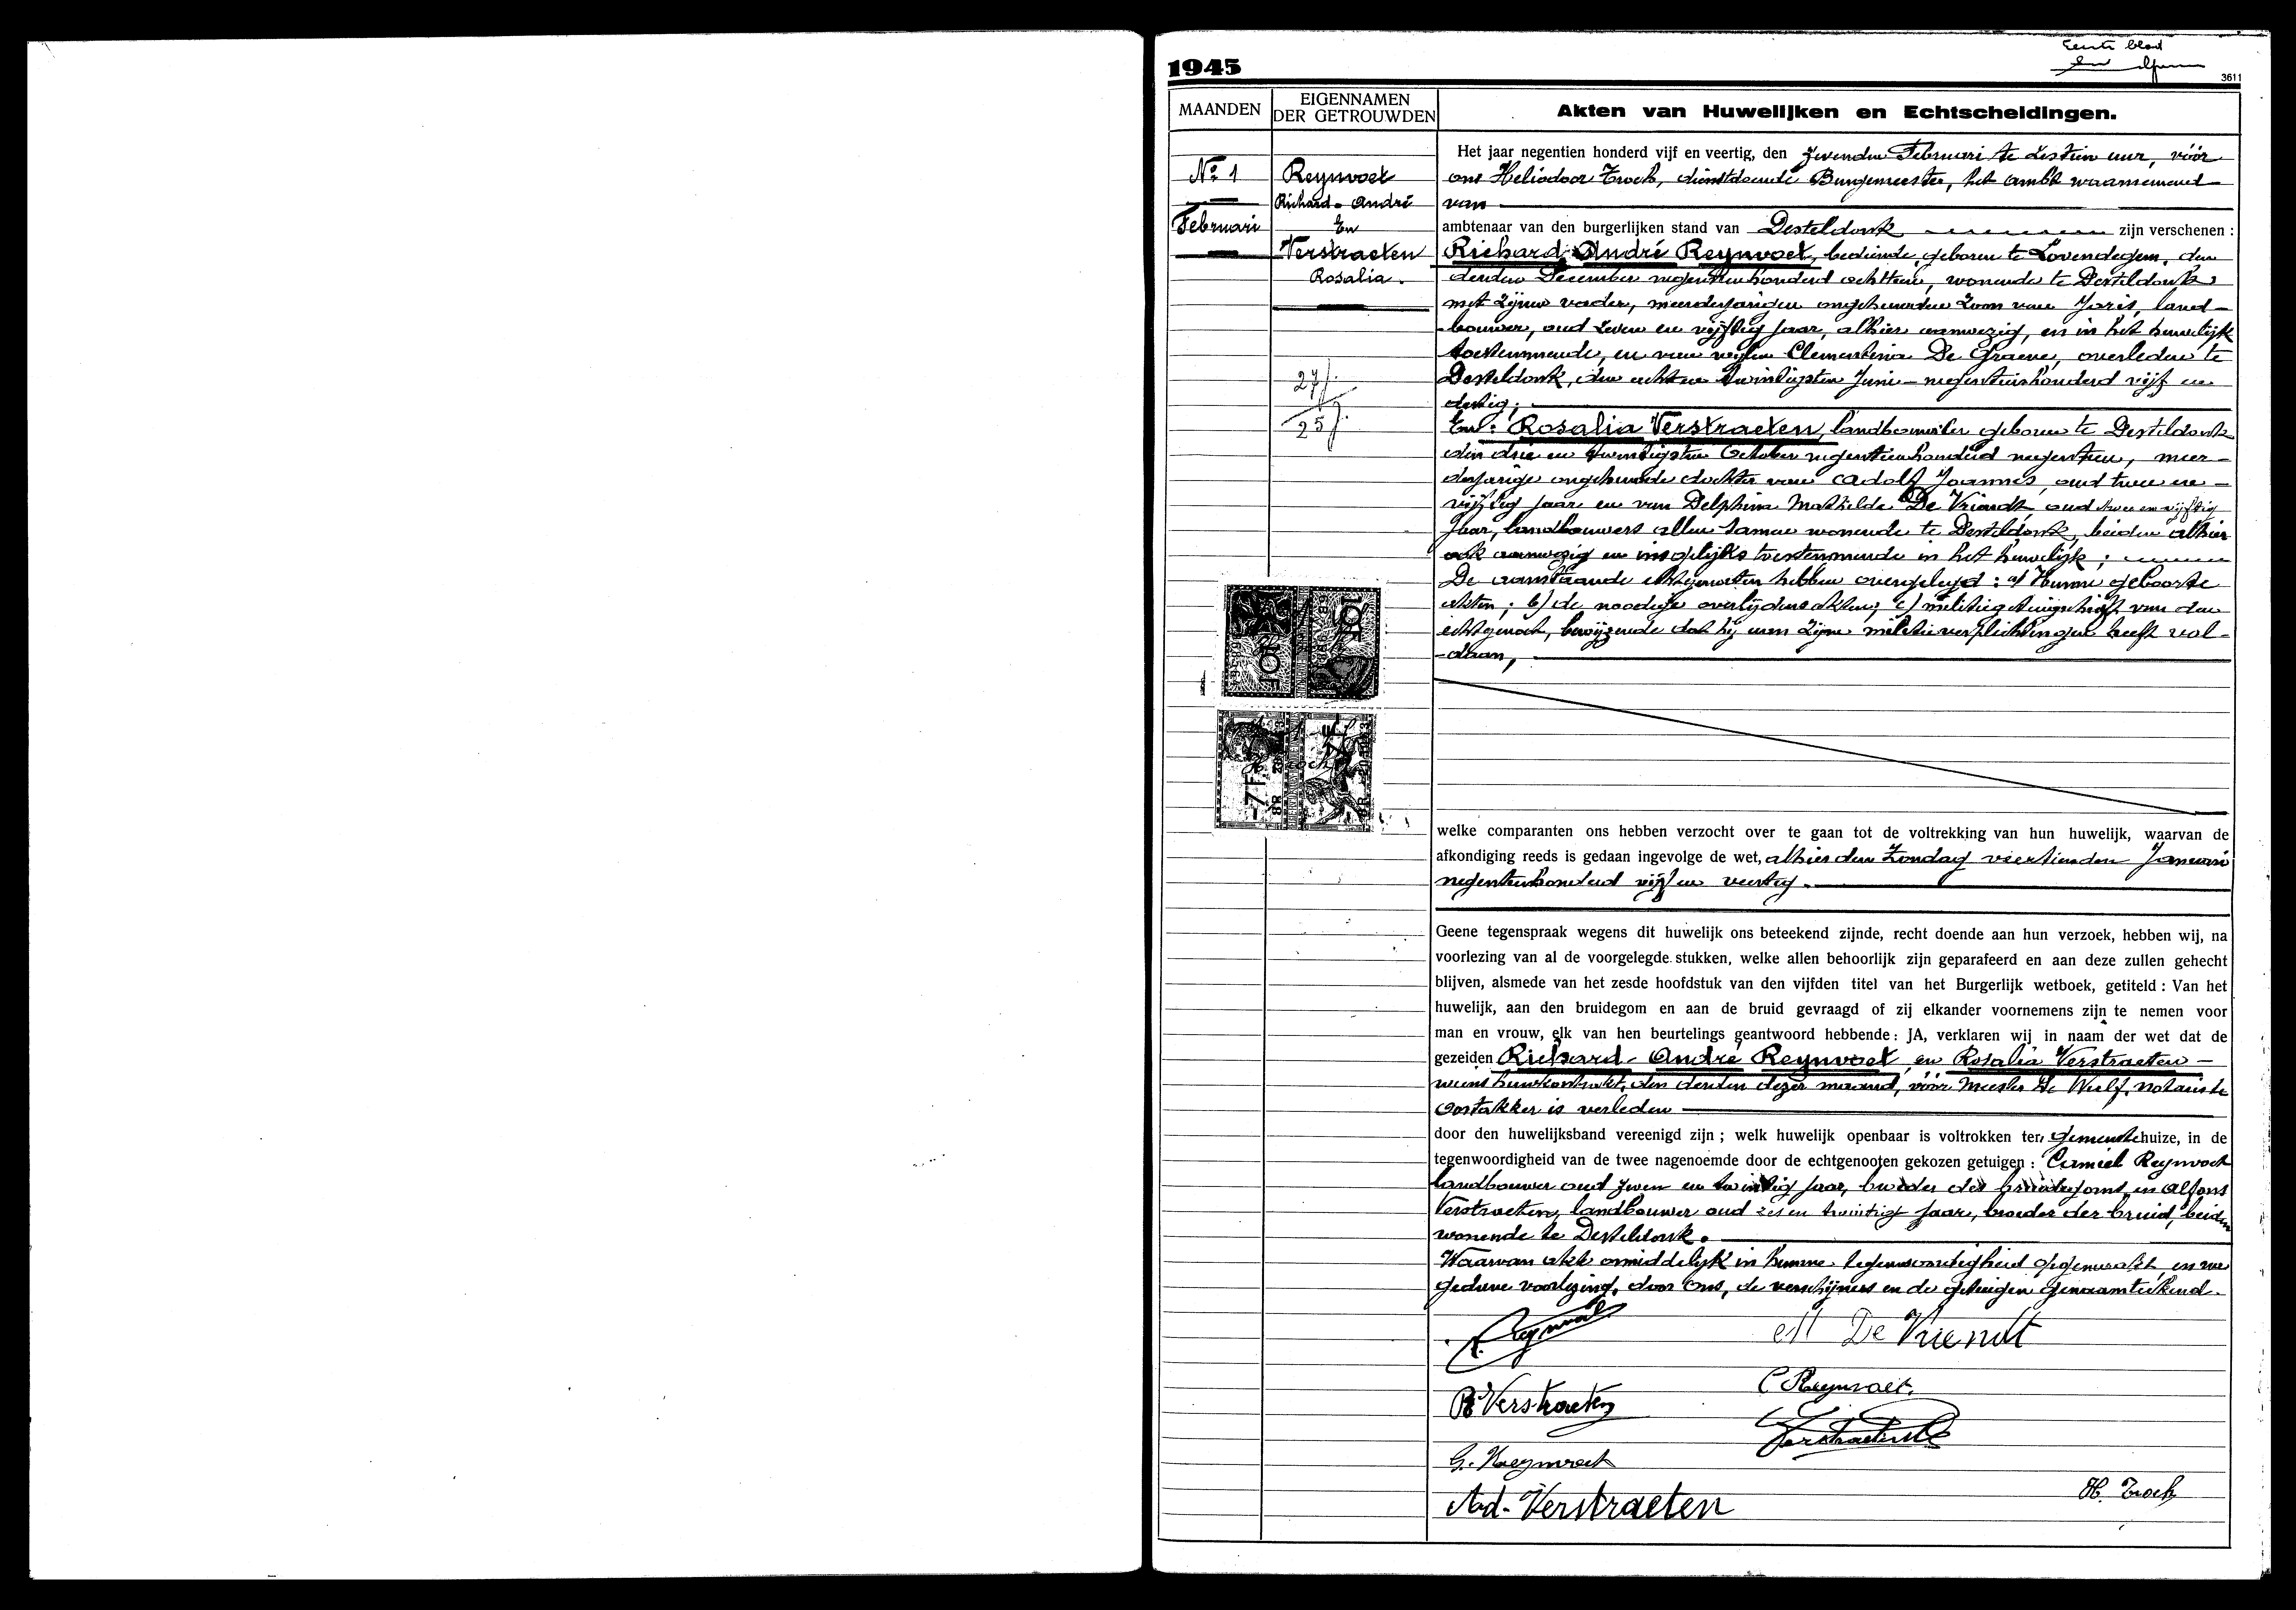 Eerste blad
1945
3611
MAANDEN
EIGENNAMEN DER GETROUWDEN
Akten van Huwelijken en Echtscheidingen.
No. 1
Februari
Reynvoet
Richard - André
En
Verstraeten
Rosalia.
27j.
25j.
Het jaar negentien honderd vijf en veertig, den zevenden Februari te zestien uur, vóór
ons Heliodoor Troch, dienstdoende Burgemeester, het ambt waarnemend
van
ambtenaar van den burgerlijken stand van Desteldonk zijn verschenen :
Richard André Reynvoet, bediende, geboren te Lovendegem, den
derden December negentienhonderd achttien, wonende te Desteldonk
met zijnen vader, meerderjarigen ongehuwden zoon van Joris, land-
-bouwer, oud zeven en vijftig jaar, alhier aanwezig, en in het huwelijk
toestemmende, en van wijlen Clementina De Graeve, overleden te
Desteldonk, den achten twintigsten Juni negentienhonderd vijf en
dertig;
En: Rosalia Verstraeten, landbouwster geboren te Desteldonk
den drie en twintigsten October negentienhonderd negentien, meer-
derjarige ongehuwde dochter van Adolf Joannes, oud twee en -
vijftig jaar en van Delphina Mathilde De Vriendt, oud twee en vijftig
jaar, landbouwers allen samen wonende te Desteldonk, beiden alhier
ook aanwezig en insgelijks toestemmende in het huwelijk ;
De aanstaande echtgenoten hebben overgelegd : a/ Hunne geboorte
akten ; b/ de noodige overlijdensakten; c/ militiegetuigschrift van den
echtgenoot, bewijzende dat hij aan zijne militieverplichtingen heeft vol-
-daan,
10F
10F
7F
7F
H. Troch
welke comparanten ons hebben verzocht over te gaan tot de voltrekking van hun huwelijk, waarvan de
afkondiging reeds is gedaan ingevolge de wet, alhier den Zondag veertienden Januari
negentienhonderd vijf en veertig.
Geene tegenspraak wegens dit huwelijk ons beteekend zijnde, recht doende aan hun verzoek, hebben wij, na
voorlezing van al de voorgelegde stukken, welke allen behoorlijk zijn geparafeerd en aan deze zullen gehecht
blijven, alsmede van het zesde hoofdstuk van den vijfden titel van het Burgerlijk wetboek, getiteld : Van het
huwelijk, aan den bruidegom en aan de bruid gevraagd of zij elkander voornemens zijn te nemen voor
man en vrouw, elk van hen beurtelings geantwoord hebbende : JA, verklaren wij in naam der wet dat de
gezeiden Richard - André Reynvoet, en Rosalia Verstraeten -
wiens huwkontrakt, den derden dezer maand, vóór Meester De Wulf, notaris te
Oostakker is verleden
door den huwelijksband vereenigd zijn ; welk huwelijk openbaar is voltrokken ten gemeentehuize, in de
tegenwoordigheid van de twee nagenoemde door de echtgenooten gekozen getuigen : Camiel Reynvoet
landbouwer oud zeven en twintig jaar, broeder des bruidegoms, en Alfons
Verstraeten, landbouwer oud zes en twintig jaar, broeder der bruid, beiden
wonende te Desteldonk.
Waarvan akte onmiddelijk in hunne tegenwoordigheid opgemaakt, en na
gedane voorlezing, door Ons, de verschijners en de getuigen genaamteekend.
R. Reynvoet
M De Vriendt
R Verstraeten
C Reynvoet.
G. Reynvoet
Verstraeten
Ad. Verstraeten
H. Troch